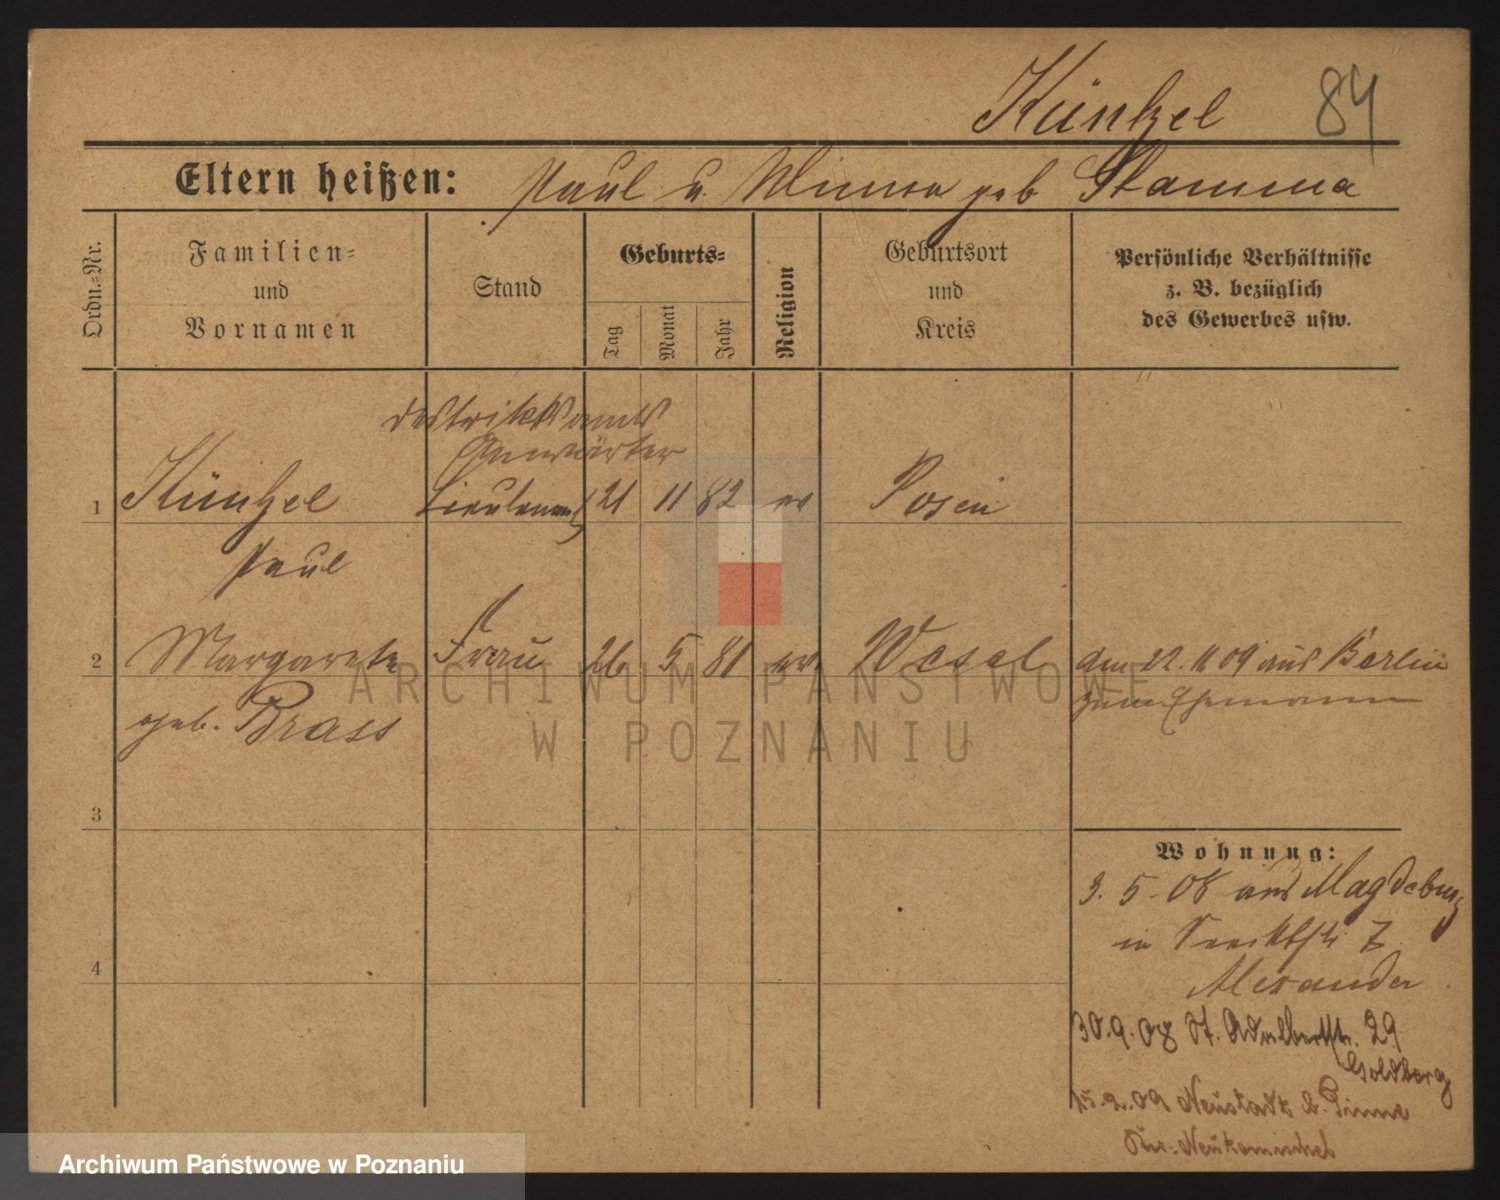 Künzel 84
Eltern heißen: Paul u. Minna geb Stamma
Ordn.-Nr.
Familien-
und
Vornamen
Stand
Geburts-
Tag
Monat
Jahr
Religion
Geburtsort
und
Kreis
Persönliche Verhältnisse
z. B. bezüglich
des Gewerbes usw.
Distriktsamts
Anwärter
1 Künzel Lieutenant 21 11 82 ev Posen
Paul
2 Margarete Frau 26 5 81 ev. Wesel am 22. 11 09 aus Berlin
geb. Brass zum Ehemann
3
Wohnung:
3. 5. 08 aus Magdeburg
in 7
4
Alexander
30.9.08 St. Adalbertstr. 29
Goldberg
15.2.09 Neustadt b. Pinne
ARCHIWUM PAŃSTWOWE
W POZNANIU
Archiwum Państwowe w Poznaniu